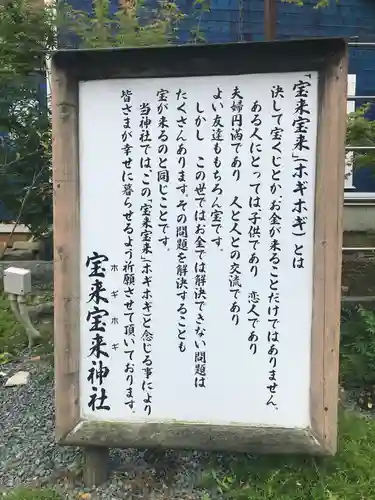 「宝来宝来」(ホギホギ)とは
決して宝くじとか、お金が来ることだけではありません。
ある人にとっては子供であり　恋人であり
夫婦円満であり　人と人との交流であり
よい友達ももちろん宝です。
しかし　この世ではお金では解決できない問題は
たくさんあります。その問題を解決することも
宝が来るのと同じことです。
当神社では、この「宝来宝来」(ホギホギ)と念じる事により
皆さまが幸せに暮らせるよう祈願させて頂いております。
宝来宝来神
ホギホギ